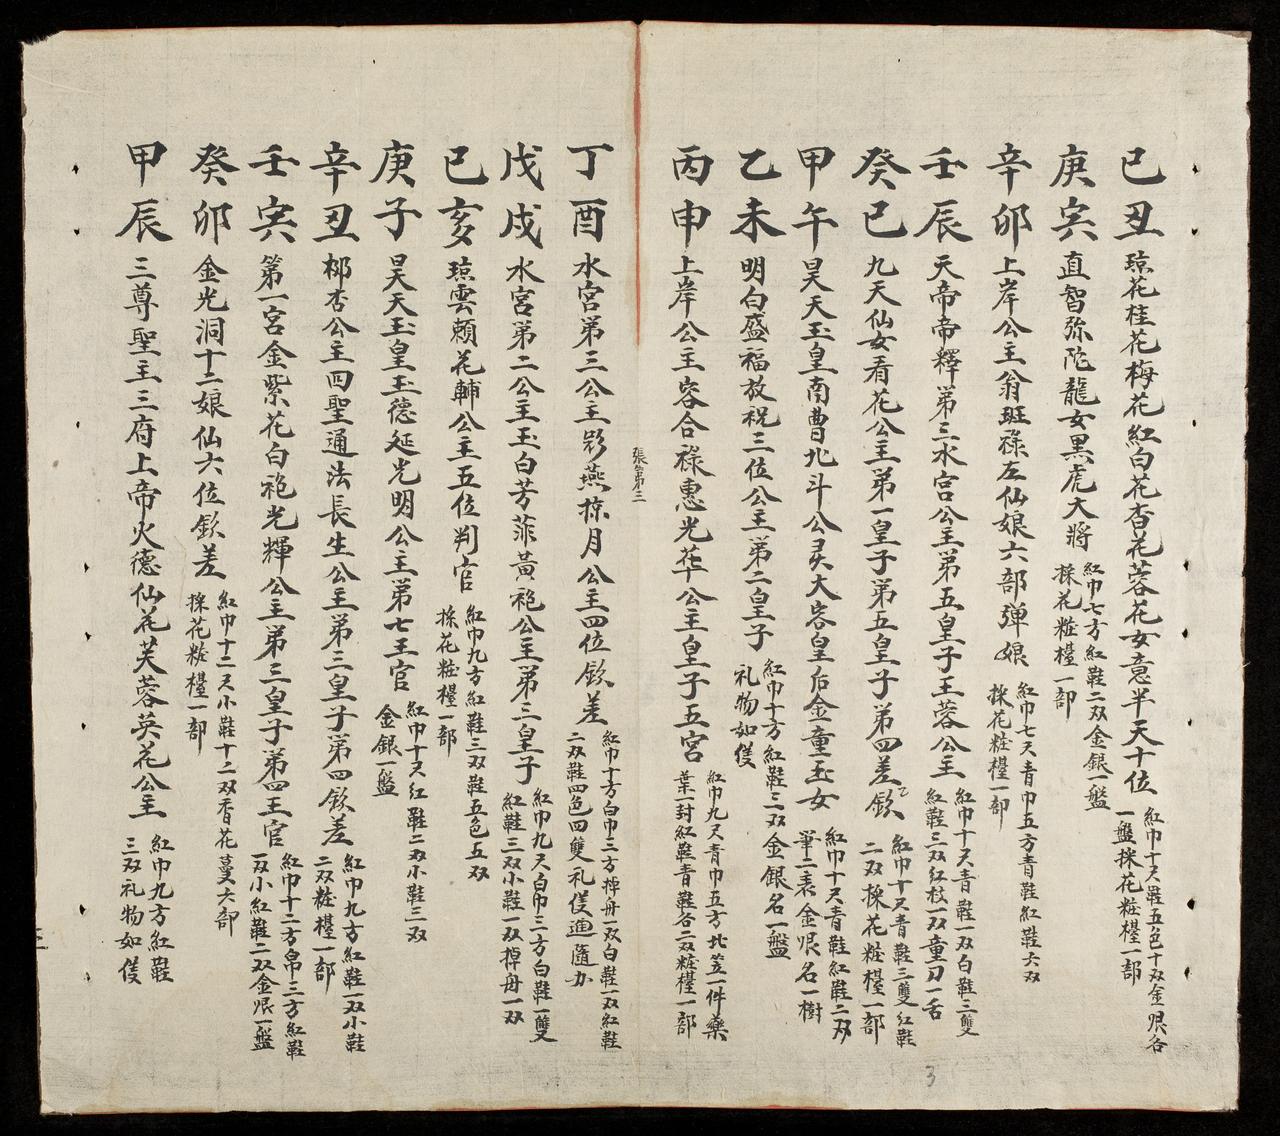 己丑 琼花桂花梅花紅白花杏花蓉花女意半天十位 紅巾十尺鞋五色十双金眼各一盤採花粧檯一部
庚寅 直智弥陀龍女黒虎大將 紅巾七方紅鞋二双金銀一盤採花粧檯一部
辛卯 上岸公主翁班祿左仙娘六部弹娘 紅巾七尺青巾五方青鞋紅鞋六双採花粧檯一部
壬辰 天帝帝釋第三水宫公主第五皇子王蓉公主 紅巾十尺青鞋一双白鞋三雙紅鞋三双紅枝一双童刀一舌
癸巳 九天仙女看花公主第一皇子第五皇子第四差欽 紅巾十尺青鞋三雙紅鞋二双採花粧檯一部
甲午 昊天玉皇南曹北斗公灵大容皇后金童玉女 紅巾十尺青鞋紅鞋二双筆二表金眼名一樹
乙未 明白盛福放祝三位公主第二皇子 紅巾十方紅鞋三双金銀名一盤礼物如仪
丙申 上岸公主容合祿惠光花公主皇子五宫 紅巾九尺青巾五方北笠一件藥葉一封紅鞋青鞋各二双粧檯一部
張第三
丁酉 水宫第三公主影燕掠月公主四位欽差 紅巾十方白巾三方掉舟一双白鞋一双紅鞋二双鞋四色四雙礼仪通隨办
戊戌 水宫第二公主玉白芳菲黄袍公主第三皇子 紅巾九尺白巾三方白鞋一雙紅鞋三双小鞋一双掉舟一双
己亥 琼雲賴花輔公主五位判官 紅巾九方紅鞋三双鞋五色五双採花粧檯一部
庚子 昊天玉皇玉德延光明公主第七王官 紅巾十尺紅鞋二双小鞋三双金銀一盤
辛丑 梛杏公主四聖通法長生公主第三皇子第四欽差 紅巾九方紅鞋一双小鞋二双粧檯一部
壬寅 第一宫金紫花白袍光輝公主第三皇子第四王官 紅巾十二方帛三方紅鞋一双小紅鞋二双金眼一盤
癸卯 金光洞十二娘仙六位欽差 紅巾十二尺小鞋十二双香花蔓六部採花粧檯一部
甲辰 三尊聖主三府上帝火德仙花芙蓉英花公主 紅巾九方紅鞋三双礼物如仪
3